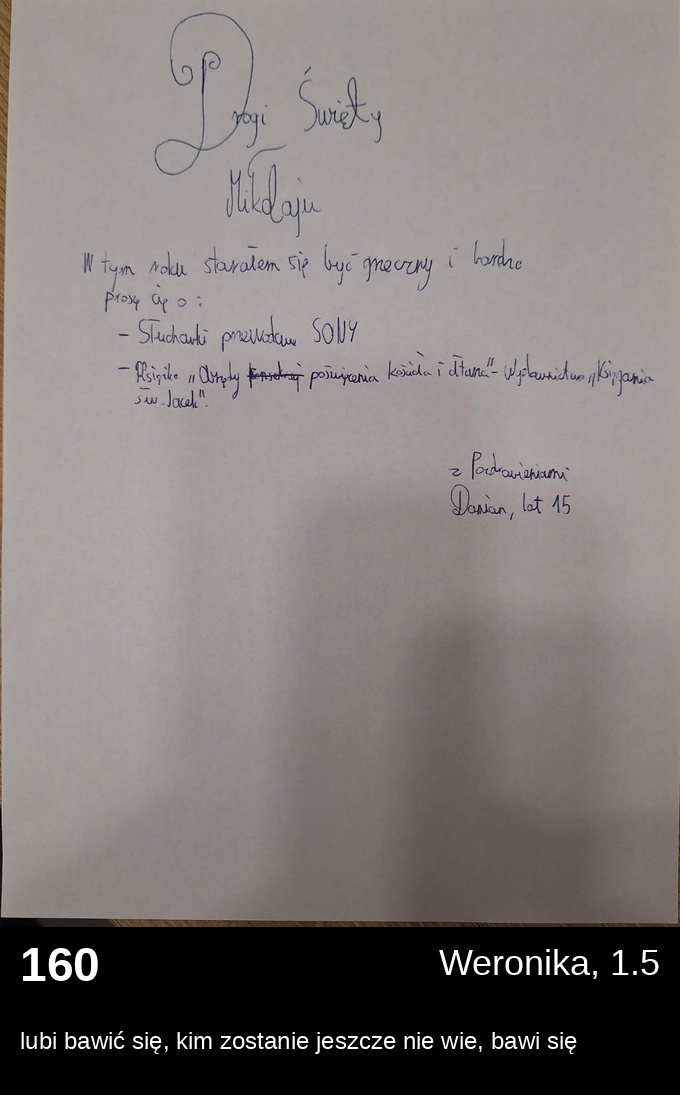 Drogi Święty
Mikołaju
W tym roku starałem się być grzeczny i bardzo
proszę cię o :
- Słuchawki przewodowe SONY
- Książkę „Obrzędy poświęcenia kościoła i ołtarza" - Wydawnictwo „Księgarnia
św. Jacek".
z Pozdrowieniami
Damian, lat 15
160
Weronika, 1.5
lubi bawić się, kim zostanie jeszcze nie wie, bawi się